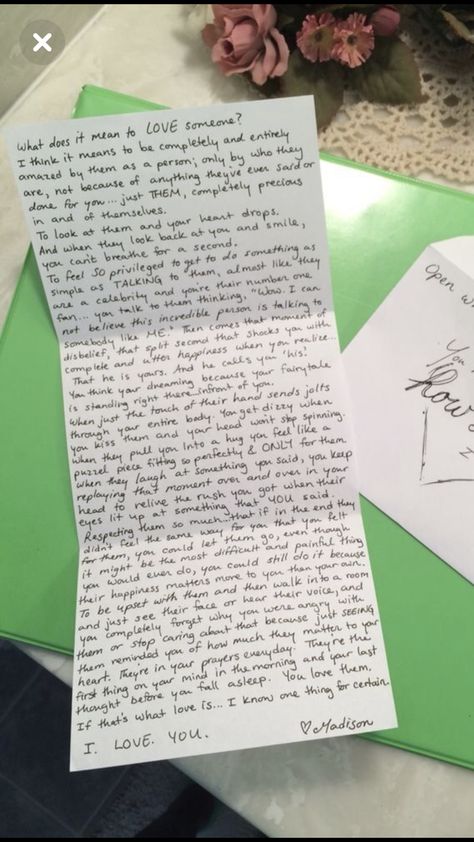 What does it mean to LOVE someone?
I think it means to be completely and entirely
amazed by them as a person; only by who they
are, not because of anything they've ever said or
done for you... just THEM, completely precious
in and of themselves.
To look at them and your heart drops.
And when they look back at you and smile,
you can't breathe for a second.
To feel SO privileged to get to do something as
simple as TALKING to them, almost like they
are a celebrity and you're their number one
fan... you talk to them thinking, "Wow. I can
not believe this incredible person is talking to
somebody like ME." Then comes that moment of
disbelief, that split second that shocks you with
complete and utter happiness when you realize...
That he is yours. And he calls you 'his'.
You think your dreaming because your fairytale
is standing right there infront of you.
When just the touch of their hand sends jolts
through your entire body. You get dizzy when
you kiss them and your head won't stop spinning.
When they pull you into a hug you feel like a
puzzel piece fitting so perfectly & ONLY for them.
When they laugh at something you said, you keep
replaying that moment over and over in your
head to relive the rush you got when their
eyes lit up at something that YOU said.
Respecting them so much... that if in the end they
didn't feel the same way for you that you felt
for them, you could let them go, even though
it might be the most difficult and painful thing
you would ever do, you could still do it because
their happiness matters more to you then your own.
To be upset with them and then walk into a room
and just see their face or hear their voice, and
you completely forget why you were angry with
them or stop caring about that because just SEEING
them reminded you of how much they matter to your
heart. They're in your prayers everyday. They're the
first thing on your mind in the morning and your last
thought before you fall asleep. You love them.
If that's what love is... I know one thing for certain.
I. LOVE. YOU.
♡Madison
Open w
You
how